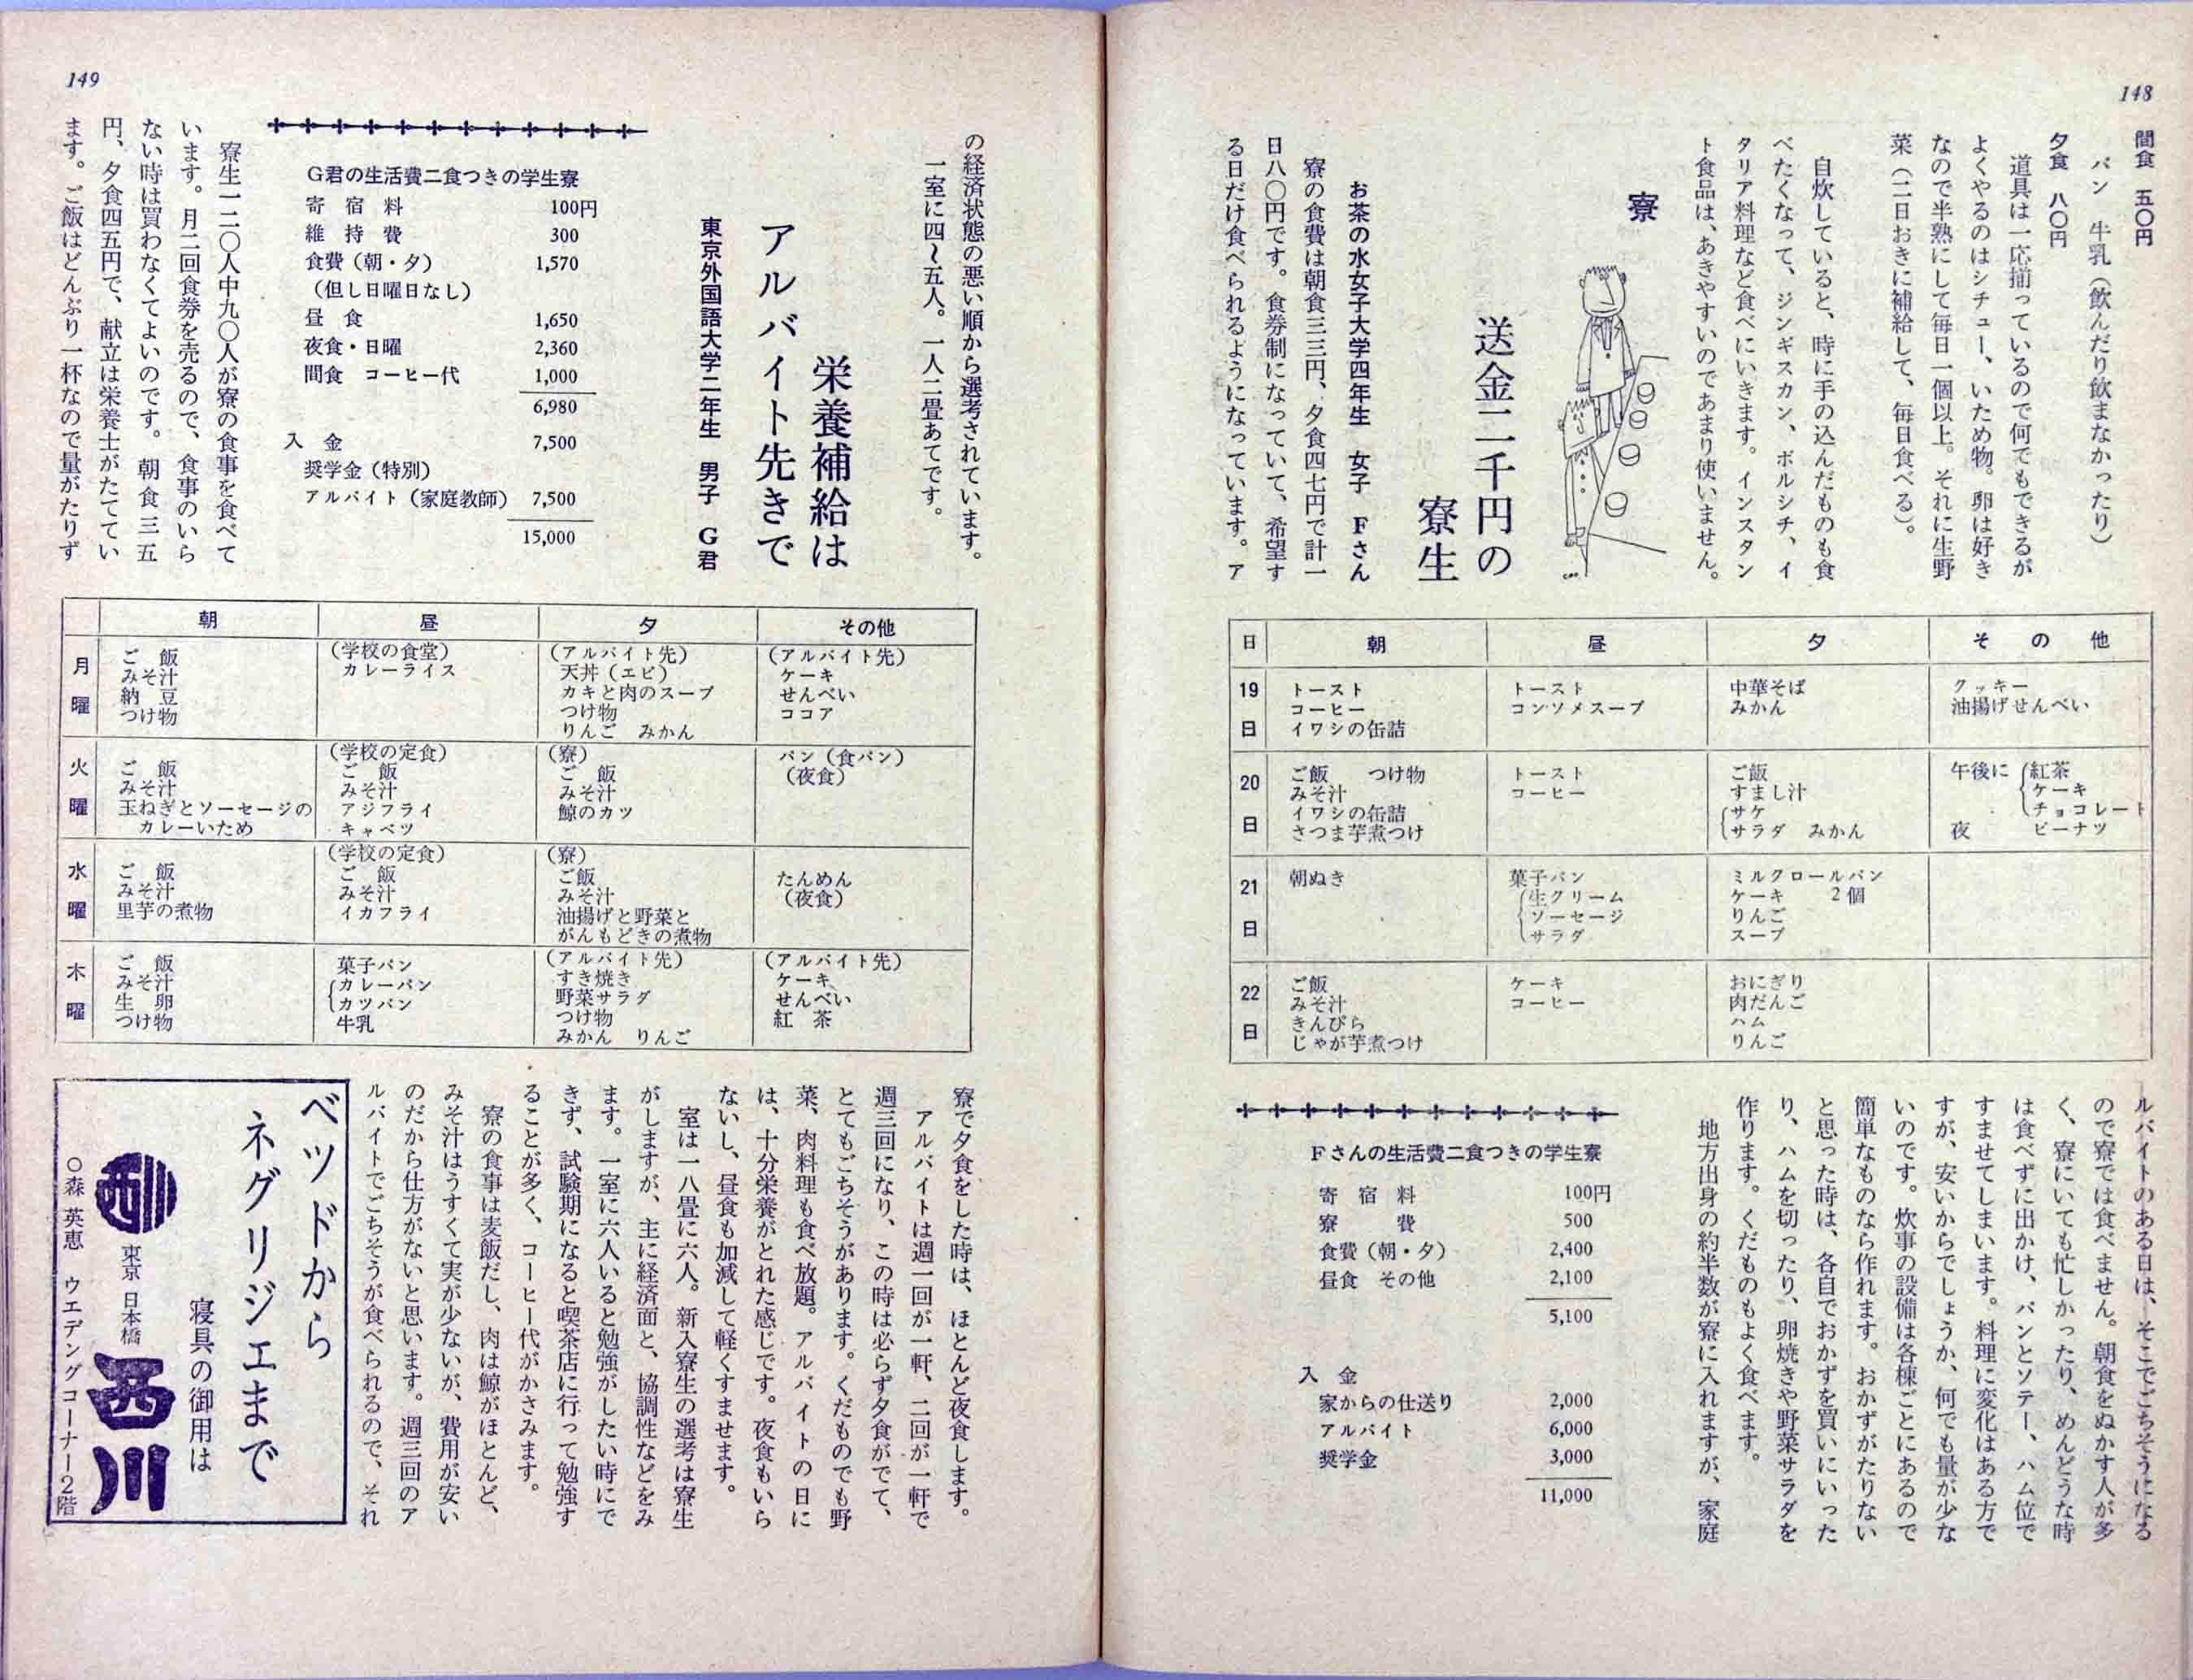 148
間食 五〇円
パン 牛乳（飲んだり飲まなかったり）
夕食 八〇円
道具は一応揃っているので何でもできるが
よくやるのはシチュー、いため物。卵は好き
なので半熟にして毎日一個以上。それに生野
菜（二日おきに補給して、毎日食べる）。
自炊していると、時に手の込んだものも食
べたくなって、ジンギスカン、ボルシチ、イ
タリア料理など食べにいきます。インスタン
ト食品は、あきやすいのであまり使いません。
寮
送金二千円の
寮生
お茶の水女子大学四年生 女子 Fさん
寮の食費は朝食三三円、夕食四七円で計一
日八〇円です。食券制になっていて、希望す
る日だけ食べられるようになっています。ア
日 朝 昼 夕 その他
19日
トースト
コーヒー
イワシの缶詰
トースト
コンソメスープ
中華そば
みかん
クッキー
油揚げせんべい
20日
ご飯 つけ物
みそ汁
イワシの缶詰
さつま芋煮つけ
トースト
コーヒー
ご飯
すまし汁
サケ
サラダ みかん
午後に 紅茶
ケーキ
チョコレート
夜 ピーナツ
21日
朝ぬき
菓子パン
生クリーム
ソーセージ
サラダ
ミルクロールパン
ケーキ 2個
りんご
スープ
22日
ご飯
みそ汁
きんぴら
じゃが芋煮つけ
ケーキ
コーヒー
おにぎり
肉だんご
ハム
りんご
ルバイトのある日は、そこでごちそうになる
ので寮では食べません。朝食をぬかす人が多
く、寮にいても忙しかったり、めんどうな時
は食べずに出かけ、パンとソテー、ハム位で
すませてしまいます。料理に変化はある方で
すが、安いからでしょうか、何でも量が少な
いのです。炊事の設備は各棟ごとにあるので
簡単なものなら作れます。おかずがたりない
と思った時は、各自でおかずを買いにいった
り、ハムを切ったり、卵焼きや野菜サラダを
作ります。くだものもよく食べます。
地方出身の約半数が寮に入れますが、家庭
Fさんの生活費二食つきの学生寮
寄宿料 100円
寮費 500
食費（朝・夕） 2,400
昼食 その他 2,100
5,100
入金
家からの仕送り 2,000
アルバイト 6,000
奨学金 3,000
11,000
149
の経済状態の悪い順から選考されています。
一室に四〜五人。一人二畳あてです。
栄養補給は
アルバイト先きで
東京外国語大学二年生 男子 G君
G君の生活費二食つきの学生寮
寄宿料 100円
維持費 300
食費（朝・夕） 1,570
（但し日曜日なし）
昼食 1,650
夜食・日曜 2,360
間食 コーヒー代 1,000
6,980
入金 7,500
奨学金（特別）
アルバイト（家庭教師） 7,500
15,000
寮生一二〇人中九〇人が寮の食事を食べて
います。月二回食券を売るので、食事のいら
ない時は買わなくてよいのです。朝食三五
円、夕食四五円で、献立は栄養士がたててい
ます。ご飯はどんぶり一杯なので量がたりず
朝 昼 夕 その他
月曜
ご飯
みそ汁
納豆
つけ物
（学校の食堂）
カレーライス
（アルバイト先）
天丼（エビ）
カキと肉のスープ
つけ物
りんご みかん
（アルバイト先）
ケーキ
せんべい
ココア
火曜
ご飯
みそ汁
玉ねぎとソーセージの
カレーいため
（学校の定食）
ご飯
みそ汁
アジフライ
キャベツ
（寮）
ご飯
みそ汁
鯨のカツ
パン（食パン）
（夜食）
水曜
ご飯
みそ汁
里芋の煮物
（学校の定食）
ご飯
みそ汁
イカフライ
（寮）
ご飯
みそ汁
油揚げと野菜と
がんもどきの煮物
たんめん
（夜食）
木曜
ご飯
みそ汁
生卵
つけ物
菓子パン
カレーパン
カツパン
牛乳
（アルバイト先）
すき焼き
野菜サラダ
つけ物
みかん りんご
（アルバイト先）
ケーキ
せんべい
紅茶
寮で夕食をした時は、ほとんど夜食します。
アルバイトは週一回が一軒、二回が一軒で
週三回になり、この時は必らず夕食がでて、
とてもごちそうがあります。くだものでも野
菜、肉料理も食べ放題。アルバイトの日に
は、十分栄養がとれた感じです。夜食もいら
ないし、昼食も加減して軽くすませます。
室は一八畳に六人。新入寮生の選考は寮生
がしますが、主に経済面と、協調性などをみ
ます。一室に六人いると勉強がしたい時にで
きず、試験期になると喫茶店に行って勉強す
ることが多く、コーヒー代がかさみます。
寮の食事は麦飯だし、肉は鯨がほとんど、
みそ汁はうすくて実が少ないが、費用が安い
のだから仕方がないと思います。週三回のア
ルバイトでごちそうが食べられるので、それ
ベッドから
ネグリジェまで
寝具の御用は
東京 日本橋
西川
○森 英恵 ウエデングコーナー2階